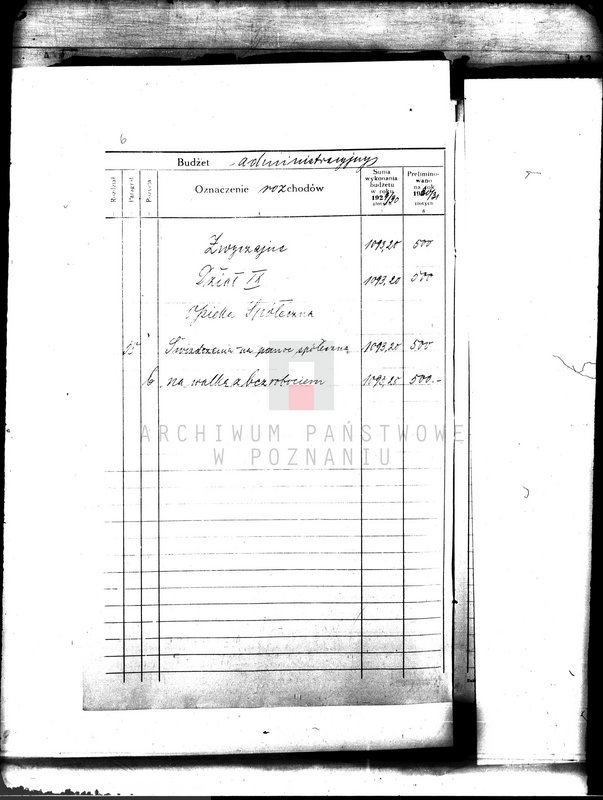 6
Budżet administracyjny
Rozdział Paragraf Pozycja Oznaczenie rozchodów Suma wykonania budżetu w roku 1929/30 Prelimino- wano na rok 1930/31 złotych
Zwyczajne 1093,20 500
Dział IX 1093,20 500
Opieka Społeczna
Świadczenia na pomoc społeczną 1093.20 500
6 na walkę z bezrobociem 1093,20 500.-
ARCHIWUM PAŃSTWOWE
W POZNANIU